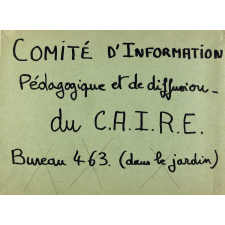 COMITÉ D'INFORMATION
Pédagogique et de diffusion_
du C.A.I.R.E.
Bureau 463. (dans le jardin)